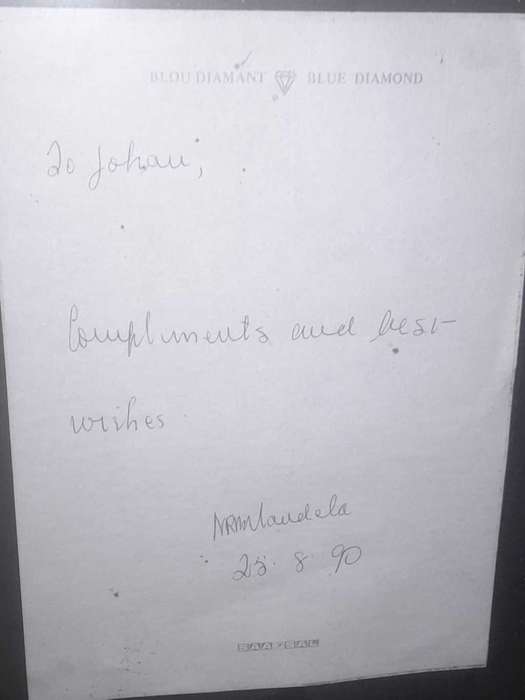 BLOU DIAMANT BLUE DIAMOND
To Johan,
Compliments and best
wishes
NRMandela
23. 8. 90
SAA·SAL